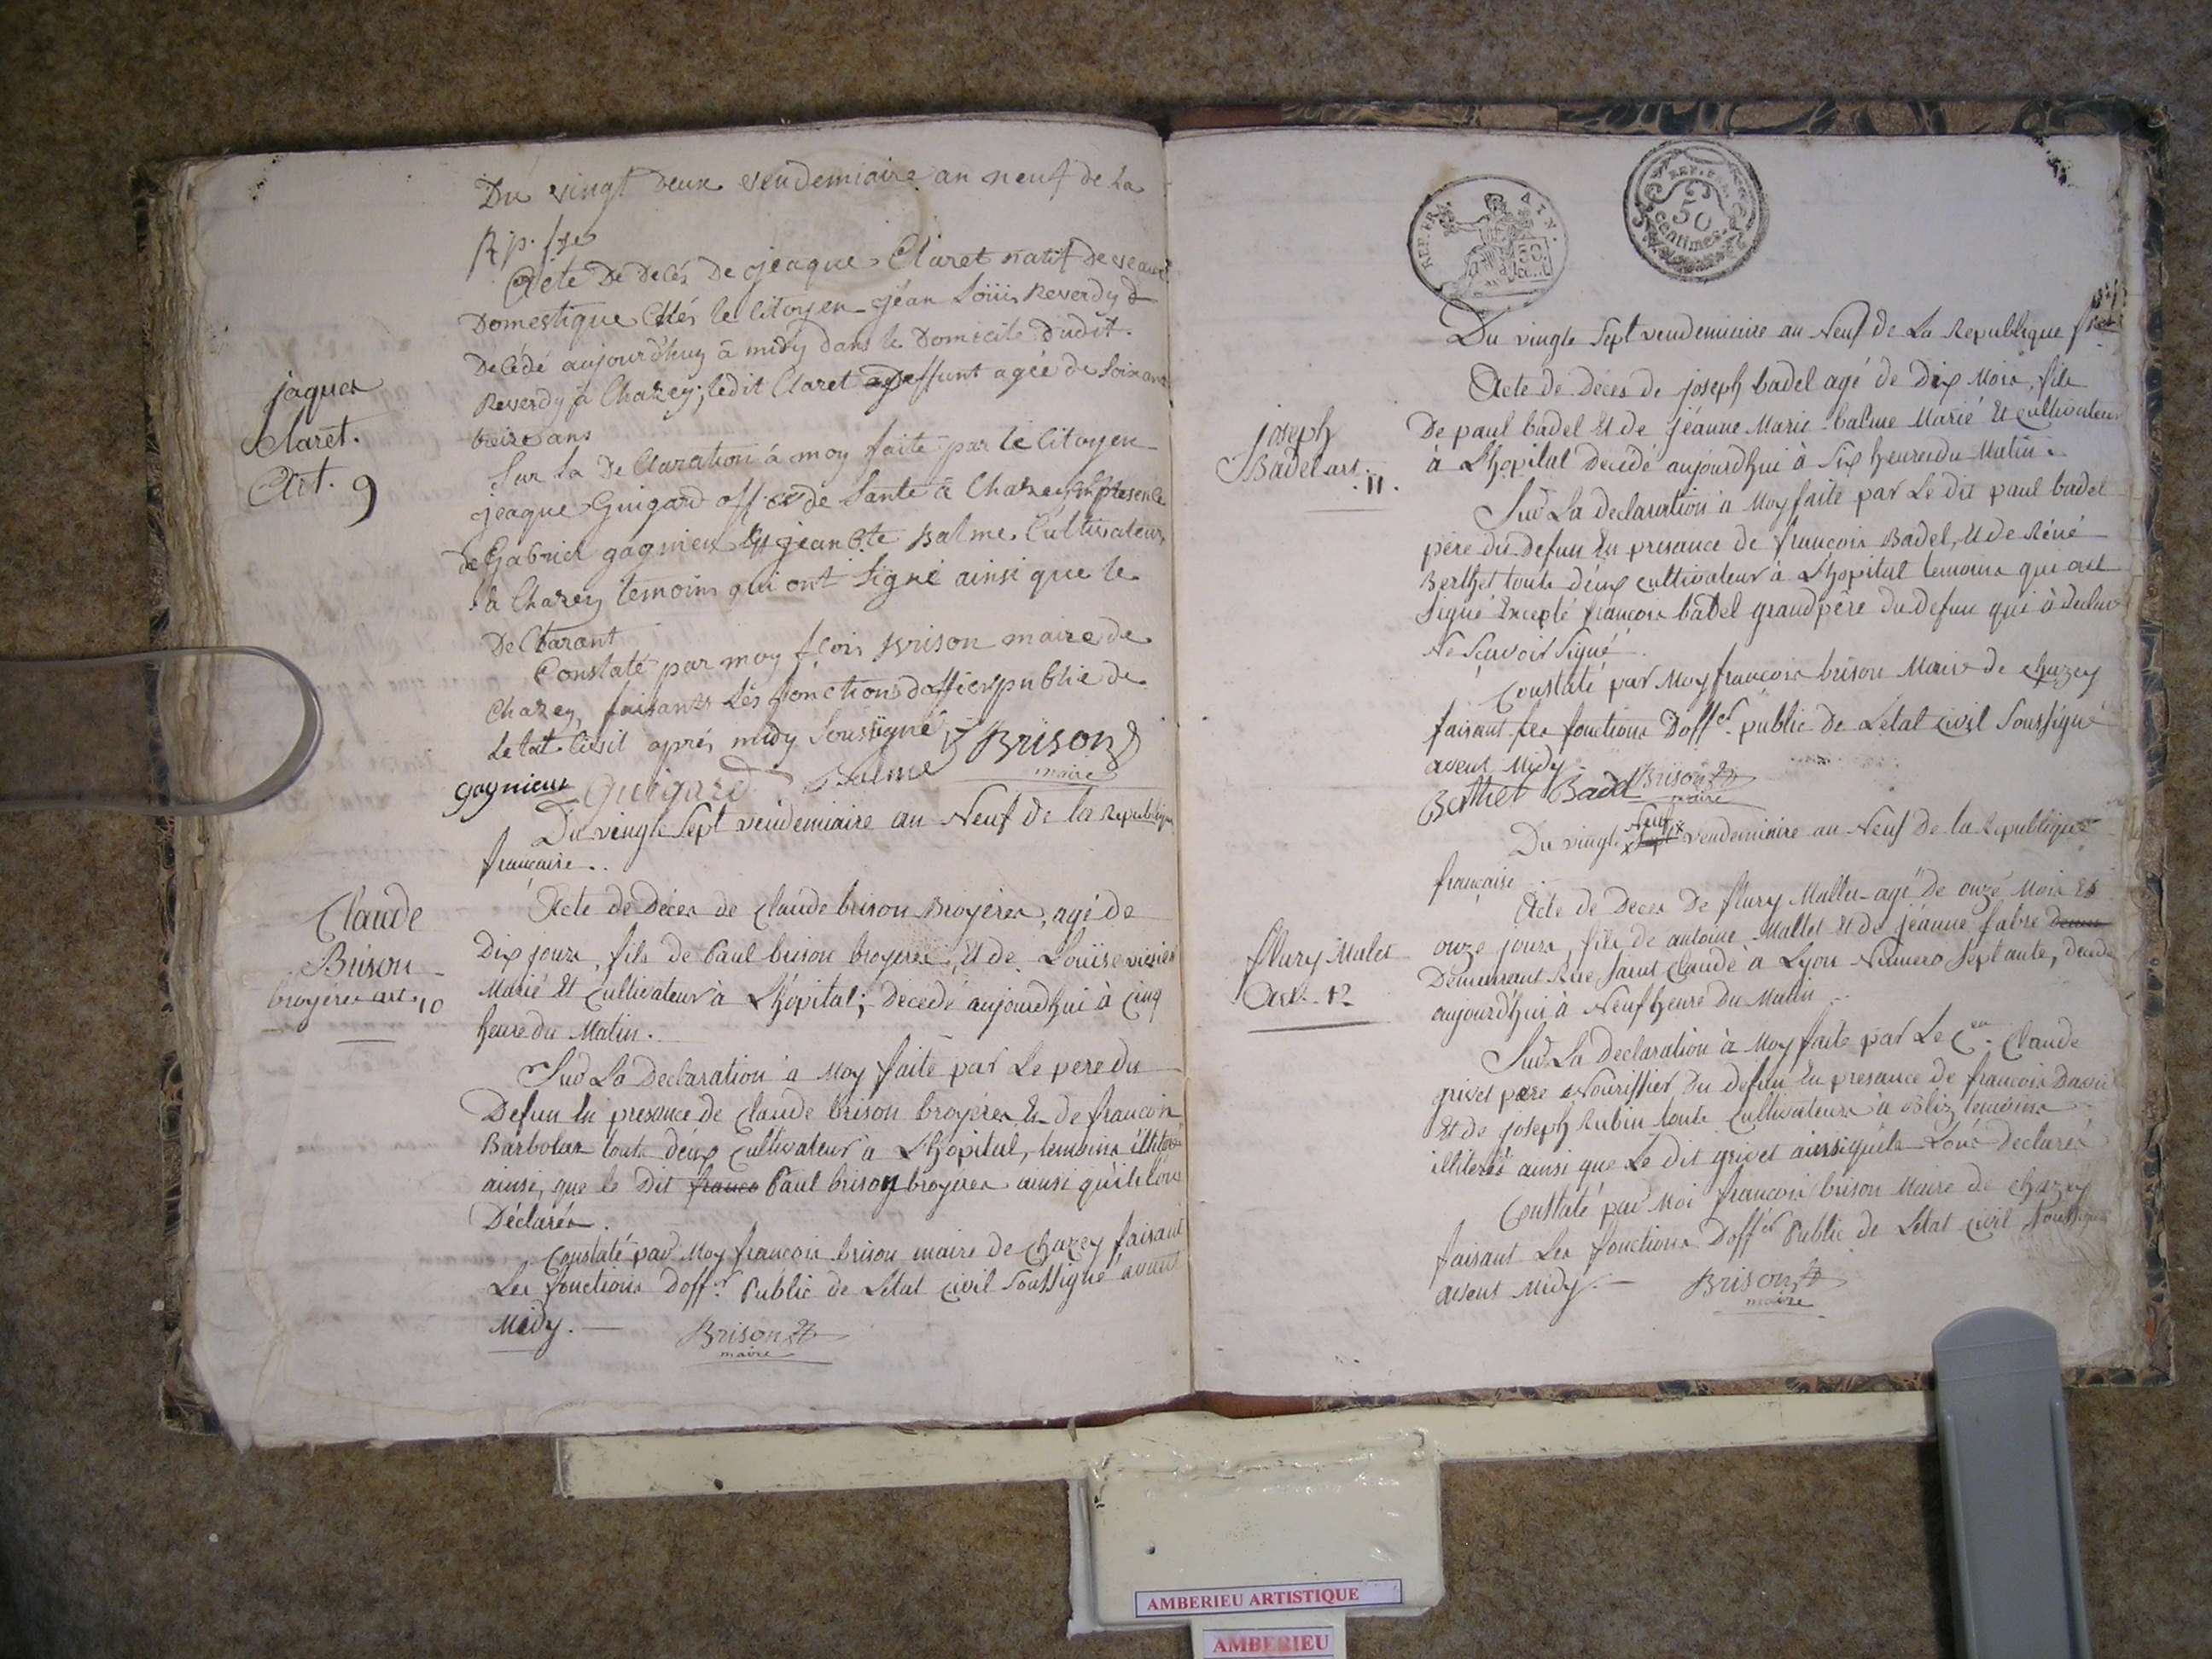 Du vingt deux vendemiaire an neuf de la
Rp. fse
Acte De Decés De jeaque Claret natif de veaux
Domestique Chés le Citoyen jéan Loüis Reverdy &
Decédé aujourdhuy à midy dans le Domicile dudit
Reverdy à Chazey, ledit Claret deffunt agée de Soixante
treize ans
jaques
Claret.
Art. 9
Sur la Declaration à moy faite par le Citoyen
jeaque Guigard off de Santé à Chazey, En presence
de Gabriel gagnieux Et jean Bte Balme Cultivateurs
à Chazey temoins qui ont Signé ainsi que le
Declarant
Constaté par moy fçois Brison maire de
Chazey, faisants Les fonctions d'officier public de
Letat Civil aprés midy Soussigné
BRISON
maire
gagnieux Guigard Balme
Du vingt Sept vendemiaire an Neuf de la Republique
française.
Claude
Brison
broyéres art. 10
Acte de Déces de Claude brison Broyéres, agé de
Dix jours, fils de Paul brison broyéres, Et de Louise
Marié Et Cultivateur à L'hôpital; Decédé aujourdhui à Cinq
heure du Matin.
Sur La Declaration à Moy faite par Le pere du
Defun En presance de Claude brison broyéres Et de francois
Barbolas touts deux Cultivateur à L'hopital, temoins illiterés
ainsi, que le Dit franco Paul brison broyéres ainsi qu'ils l'ons
Déclarés.
Constaté par Moy francois brison maire de Chazey faisant
Les fonctions Doffer Public de Létat Civil Soussigné avant
Midy.
Brison
maire
REP. FRA.
50
REP. FRA.
50
centimes
Du vingte Sept vendemiaire an Neuf de La Republique
Joseph
Badel art.
.11.
Acte de Déces de joseph badel agé de Dix Mois, fils
De paul badel Et de jéanne Marie balme Marié Et Cultivateur
à L'hopital Decédé aujourdhui à Six heures du Matin.
Sur La declaration à Moy faite par Le dit paul badel
père du Defun En presance de francois Badel, Et de Réné
Berthet touts deux cultivateur à L'hopital temoins qui ont
Signé Excepté francois badel grandpère du defun qui à declaré
Ne Scavoir Signé.
Constaté par Moy francois brison Maire de Chazey
faisant les fonctions Doffer public de Létat Civil Soussigné
avent Midy
Berthet Badel Brison
maire
Neuf
Du vingt Sept vendemiaire an Neuf de la Republique
française
flury Malet
Art. 12
Acte de Déces De flury Mallet agé de onze Mois Et
onze jours, fils de antoine Mallet Et de jéanne fabre
Demeurant Rue Saint Claude à Lyon Numero Septante,
aujourdhui à Neuf heure Du Matin
Sur La Declaration à Moy faite par Le Cen. Claude
grivet pere Nourissier Du defun En presance de francois
Et de joseph Rubin touts Cultivateurs à temoins
illiterés ainsi que Le dit grivet ainsi qu'ils Lons Declarés
Constaté par Moi francois brison Maire de Chazey
faisant Les fonctions Doffer Public de Létat Civil Soussigné
avent Midy.
Brison
maire
AMBERIEU ARTISTIQUE
AMBERIEU